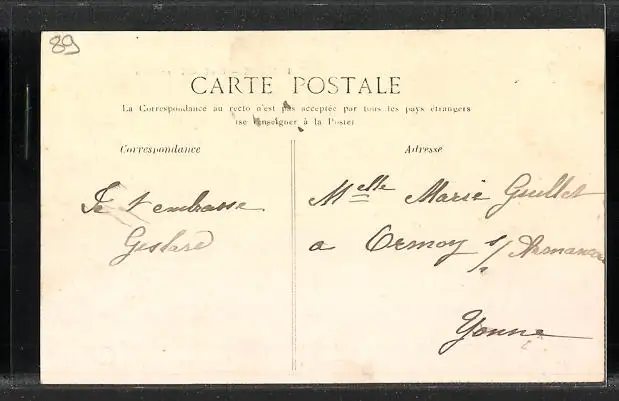 89
CARTE POSTALE
La Correspondance au recto n'est pas acceptée par tous les pays étrangers
(se renseigner à la Poste)
Correspondance
Adresse
Je t'embrasse
Melle Marie Guillet
a Ormoy s/
Yonne